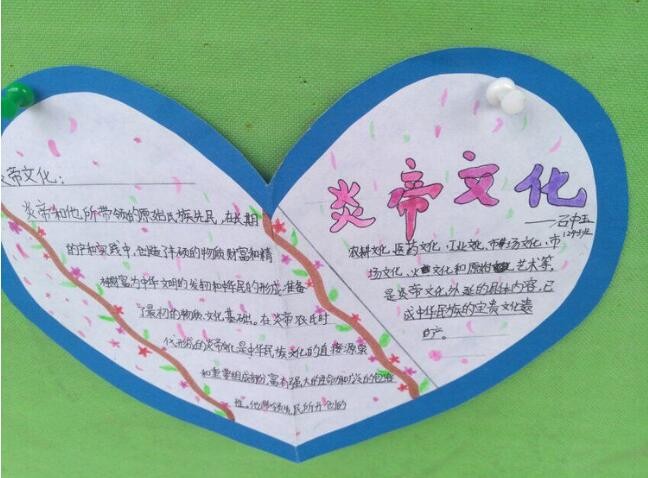 炎帝文化:
炎帝和他所带领的原始氏族先民,在长期
的生产和实践中,创造了丰硕的物质财富和精
神财富为中华文明的发祥和中华民的形成,准备
了最初的物质文化基础。在炎帝农氏时
代形成的炎帝文化是中华民族文化的直接源泉
和重要组成部分,富有强大的生命力和
性。他带领先民所开创的
炎帝文化
——石中玉
农耕文化、医药文化、工业文化、市场文化、市
场文化、火文化和原始 艺术等,
是炎帝文化外延的具体内容,已
成中华民族的宝贵文化遗
产。